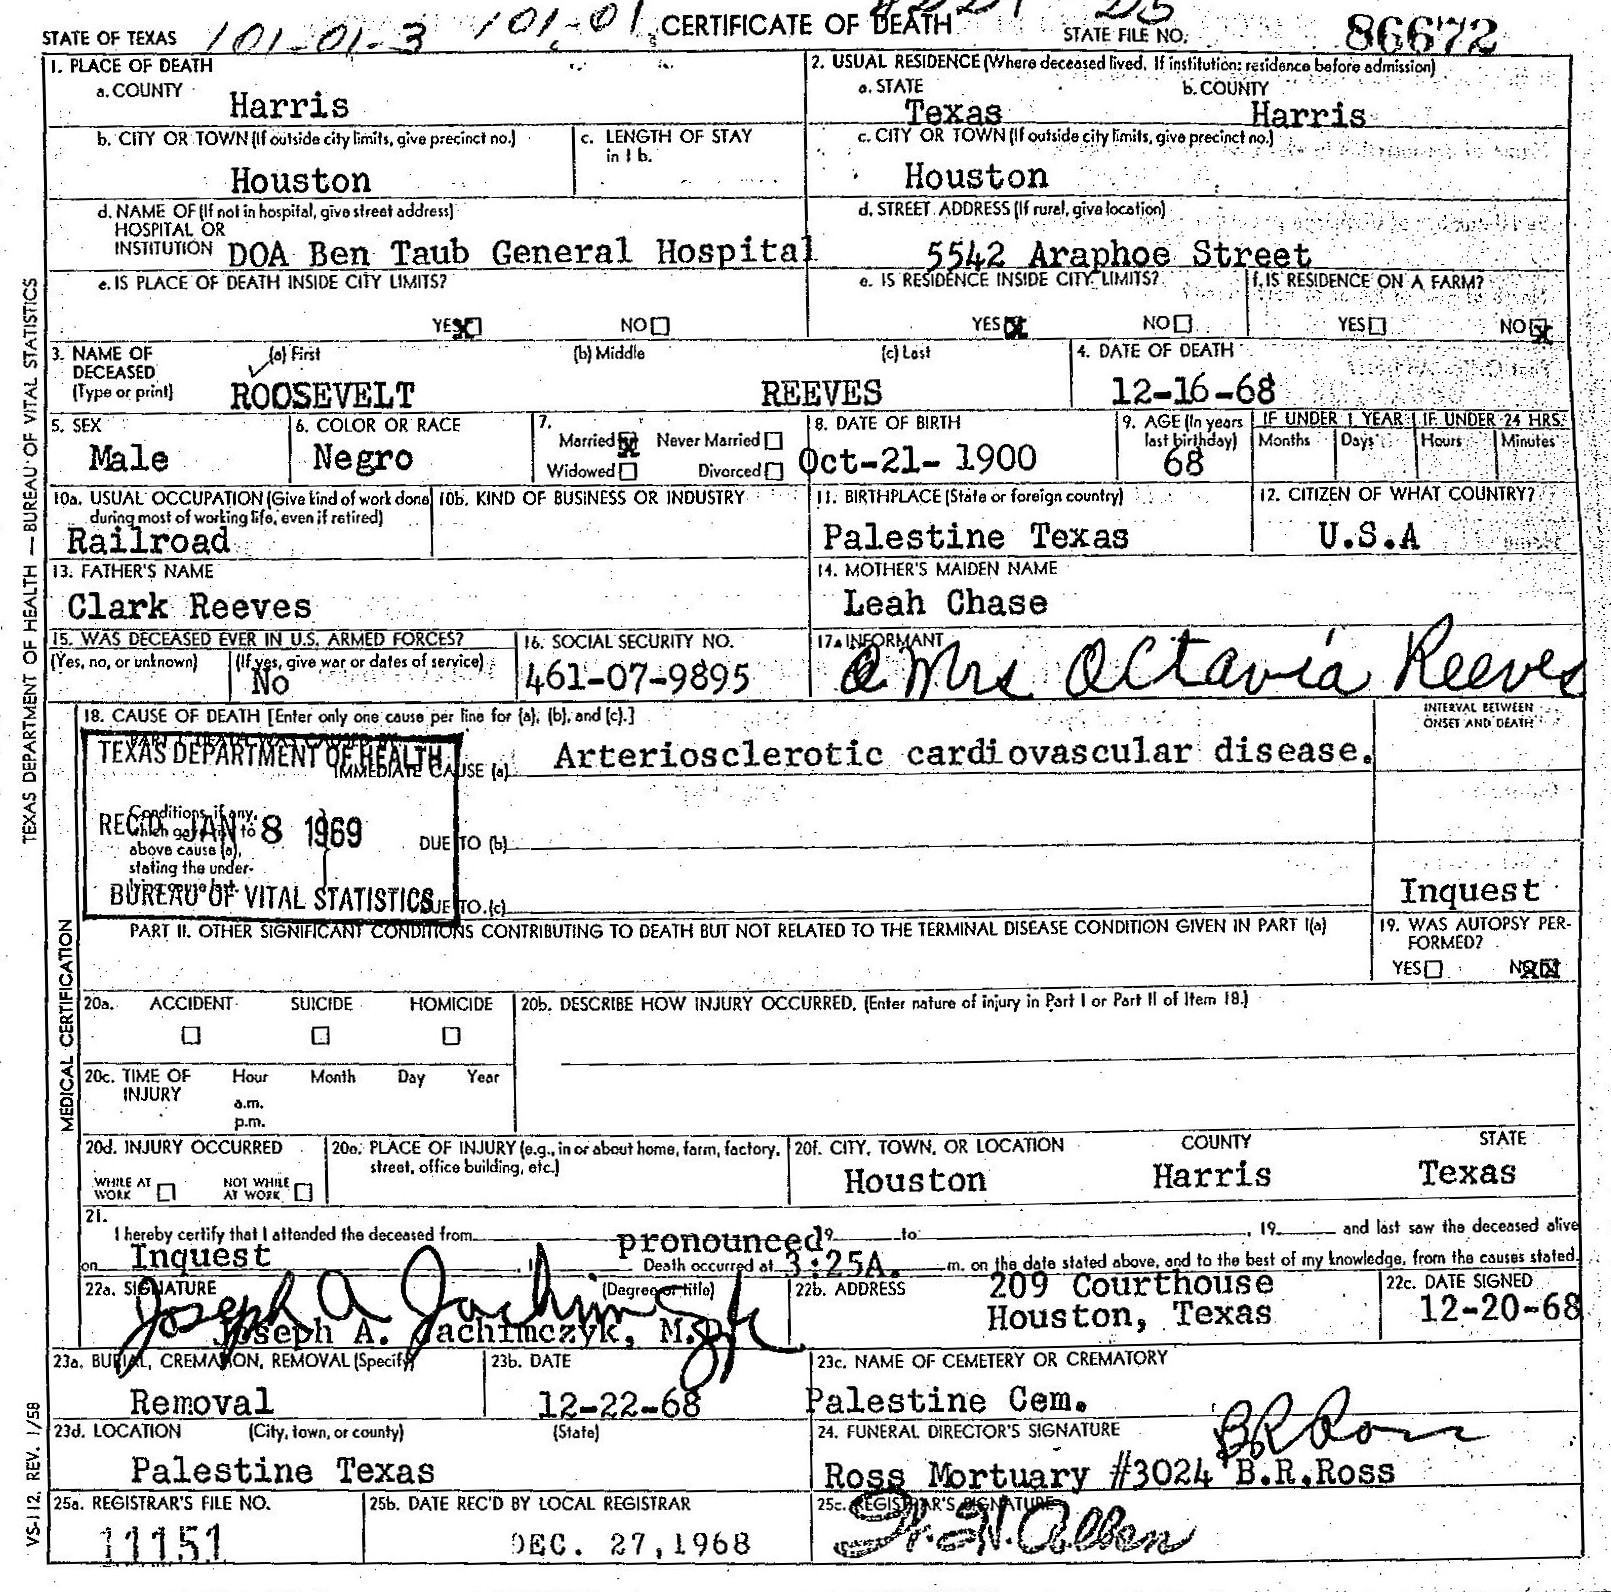 STATE OF TEXAS 101-01-3 101-01 CERTIFICATE OF DEATH STATE FILE NO. 86672
1. PLACE OF DEATH
a. COUNTY Harris
2. USUAL RESIDENCE (Where deceased lived. If institution: residence before admission)
a. STATE Texas b. COUNTY Harris
b. CITY OR TOWN (If outside city limits, give precinct no.) Houston
c. LENGTH OF STAY in 1 b.
c. CITY OR TOWN (If outside city limits, give precinct no.) Houston
d. NAME OF (If not in hospital, give street address)
HOSPITAL OR
INSTITUTION DOA Ben Taub General Hospital
d. STREET ADDRESS (If rural, give location)
5542 Araphoe Street
e. IS PLACE OF DEATH INSIDE CITY LIMITS?
YES NO
e. IS RESIDENCE INSIDE CITY LIMITS?
YES NO
f. IS RESIDENCE ON A FARM?
YES NO
3. NAME OF DECEASED (Type or print)
(a) First (b) Middle (c) Last
ROOSEVELT REEVES
4. DATE OF DEATH
12-16-68
5. SEX
Male
6. COLOR OR RACE
Negro
7. Married Never Married
Widowed Divorced
8. DATE OF BIRTH
Oct-21- 1900
9. AGE (In years last birthday)
68
IF UNDER 1 YEAR IF UNDER 24 HRS.
Months Days Hours Minutes
10a. USUAL OCCUPATION (Give kind of work done during most of working life, even if retired)
Railroad
10b. KIND OF BUSINESS OR INDUSTRY
11. BIRTHPLACE (State or foreign country)
Palestine Texas
12. CITIZEN OF WHAT COUNTRY?
U.S.A
13. FATHER'S NAME
Clark Reeves
14. MOTHER'S MAIDEN NAME
Leah Chase
15. WAS DECEASED EVER IN U.S. ARMED FORCES?
(Yes, no, or unknown) (If yes, give war or dates of service)
No
16. SOCIAL SECURITY NO.
461-07-9895
17. INFORMANT
Mrs Octavia Reeves
18. CAUSE OF DEATH [Enter only one cause per line for (a), (b), and (c).]
INTERVAL BETWEEN ONSET AND DEATH
IMMEDIATE CAUSE (a) Arteriosclerotic cardiovascular disease.
TEXAS DEPARTMENT OF HEALTH
REC'D JAN 8 1969
BUREAU OF VITAL STATISTICS
Conditions, if any, which gave rise to above cause (a), stating the underlying cause last.
DUE TO (b)
DUE TO (c)
Inquest
PART II. OTHER SIGNIFICANT CONDITIONS CONTRIBUTING TO DEATH BUT NOT RELATED TO THE TERMINAL DISEASE CONDITION GIVEN IN PART I(a)
19. WAS AUTOPSY PERFORMED?
YES NO
20a. ACCIDENT SUICIDE HOMICIDE
20b. DESCRIBE HOW INJURY OCCURRED. (Enter nature of injury in Part I or Part II of Item 18.)
20c. TIME OF INJURY
Hour Month Day Year
a.m.
p.m.
20d. INJURY OCCURRED
WHILE AT WORK NOT WHILE AT WORK
20e. PLACE OF INJURY (e.g., in or about home, farm, factory, street, office building, etc.)
20f. CITY, TOWN, OR LOCATION COUNTY STATE
Houston Harris Texas
21.
I hereby certify that I attended the deceased from 19 to , 19 and last saw the deceased alive
on Inquest pronounced Death occurred at 3:25A. m. on the date stated above, and to the best of my knowledge, from the causes stated.
22a. SIGNATURE (Degree or title)
Joseph A. Jachimczyk
Joseph A. Jachimczyk, M.D.
22b. ADDRESS 209 Courthouse
Houston, Texas
22c. DATE SIGNED
12-20-68
23a. BURIAL, CREMATION, REMOVAL (Specify)
Removal
23b. DATE
12-22-68
23c. NAME OF CEMETERY OR CREMATORY
Palestine Cem.
23d. LOCATION (City, town, or county) (State)
Palestine Texas
24. FUNERAL DIRECTOR'S SIGNATURE
BR Ross
Ross Mortuary #3024 B.R.Ross
25a. REGISTRAR'S FILE NO.
11151
25b. DATE REC'D BY LOCAL REGISTRAR
DEC. 27, 1968
25c. REGISTRAR'S SIGNATURE
TEXAS DEPARTMENT OF HEALTH — BUREAU OF VITAL STATISTICS
MEDICAL CERTIFICATION
VS-112, REV. 1/58